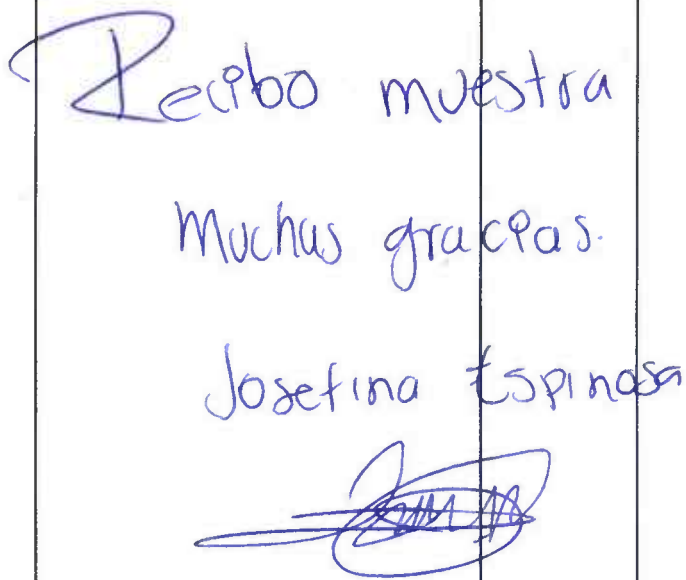 Recibo muestra
Muchas gracias.
Josefina Espinosa